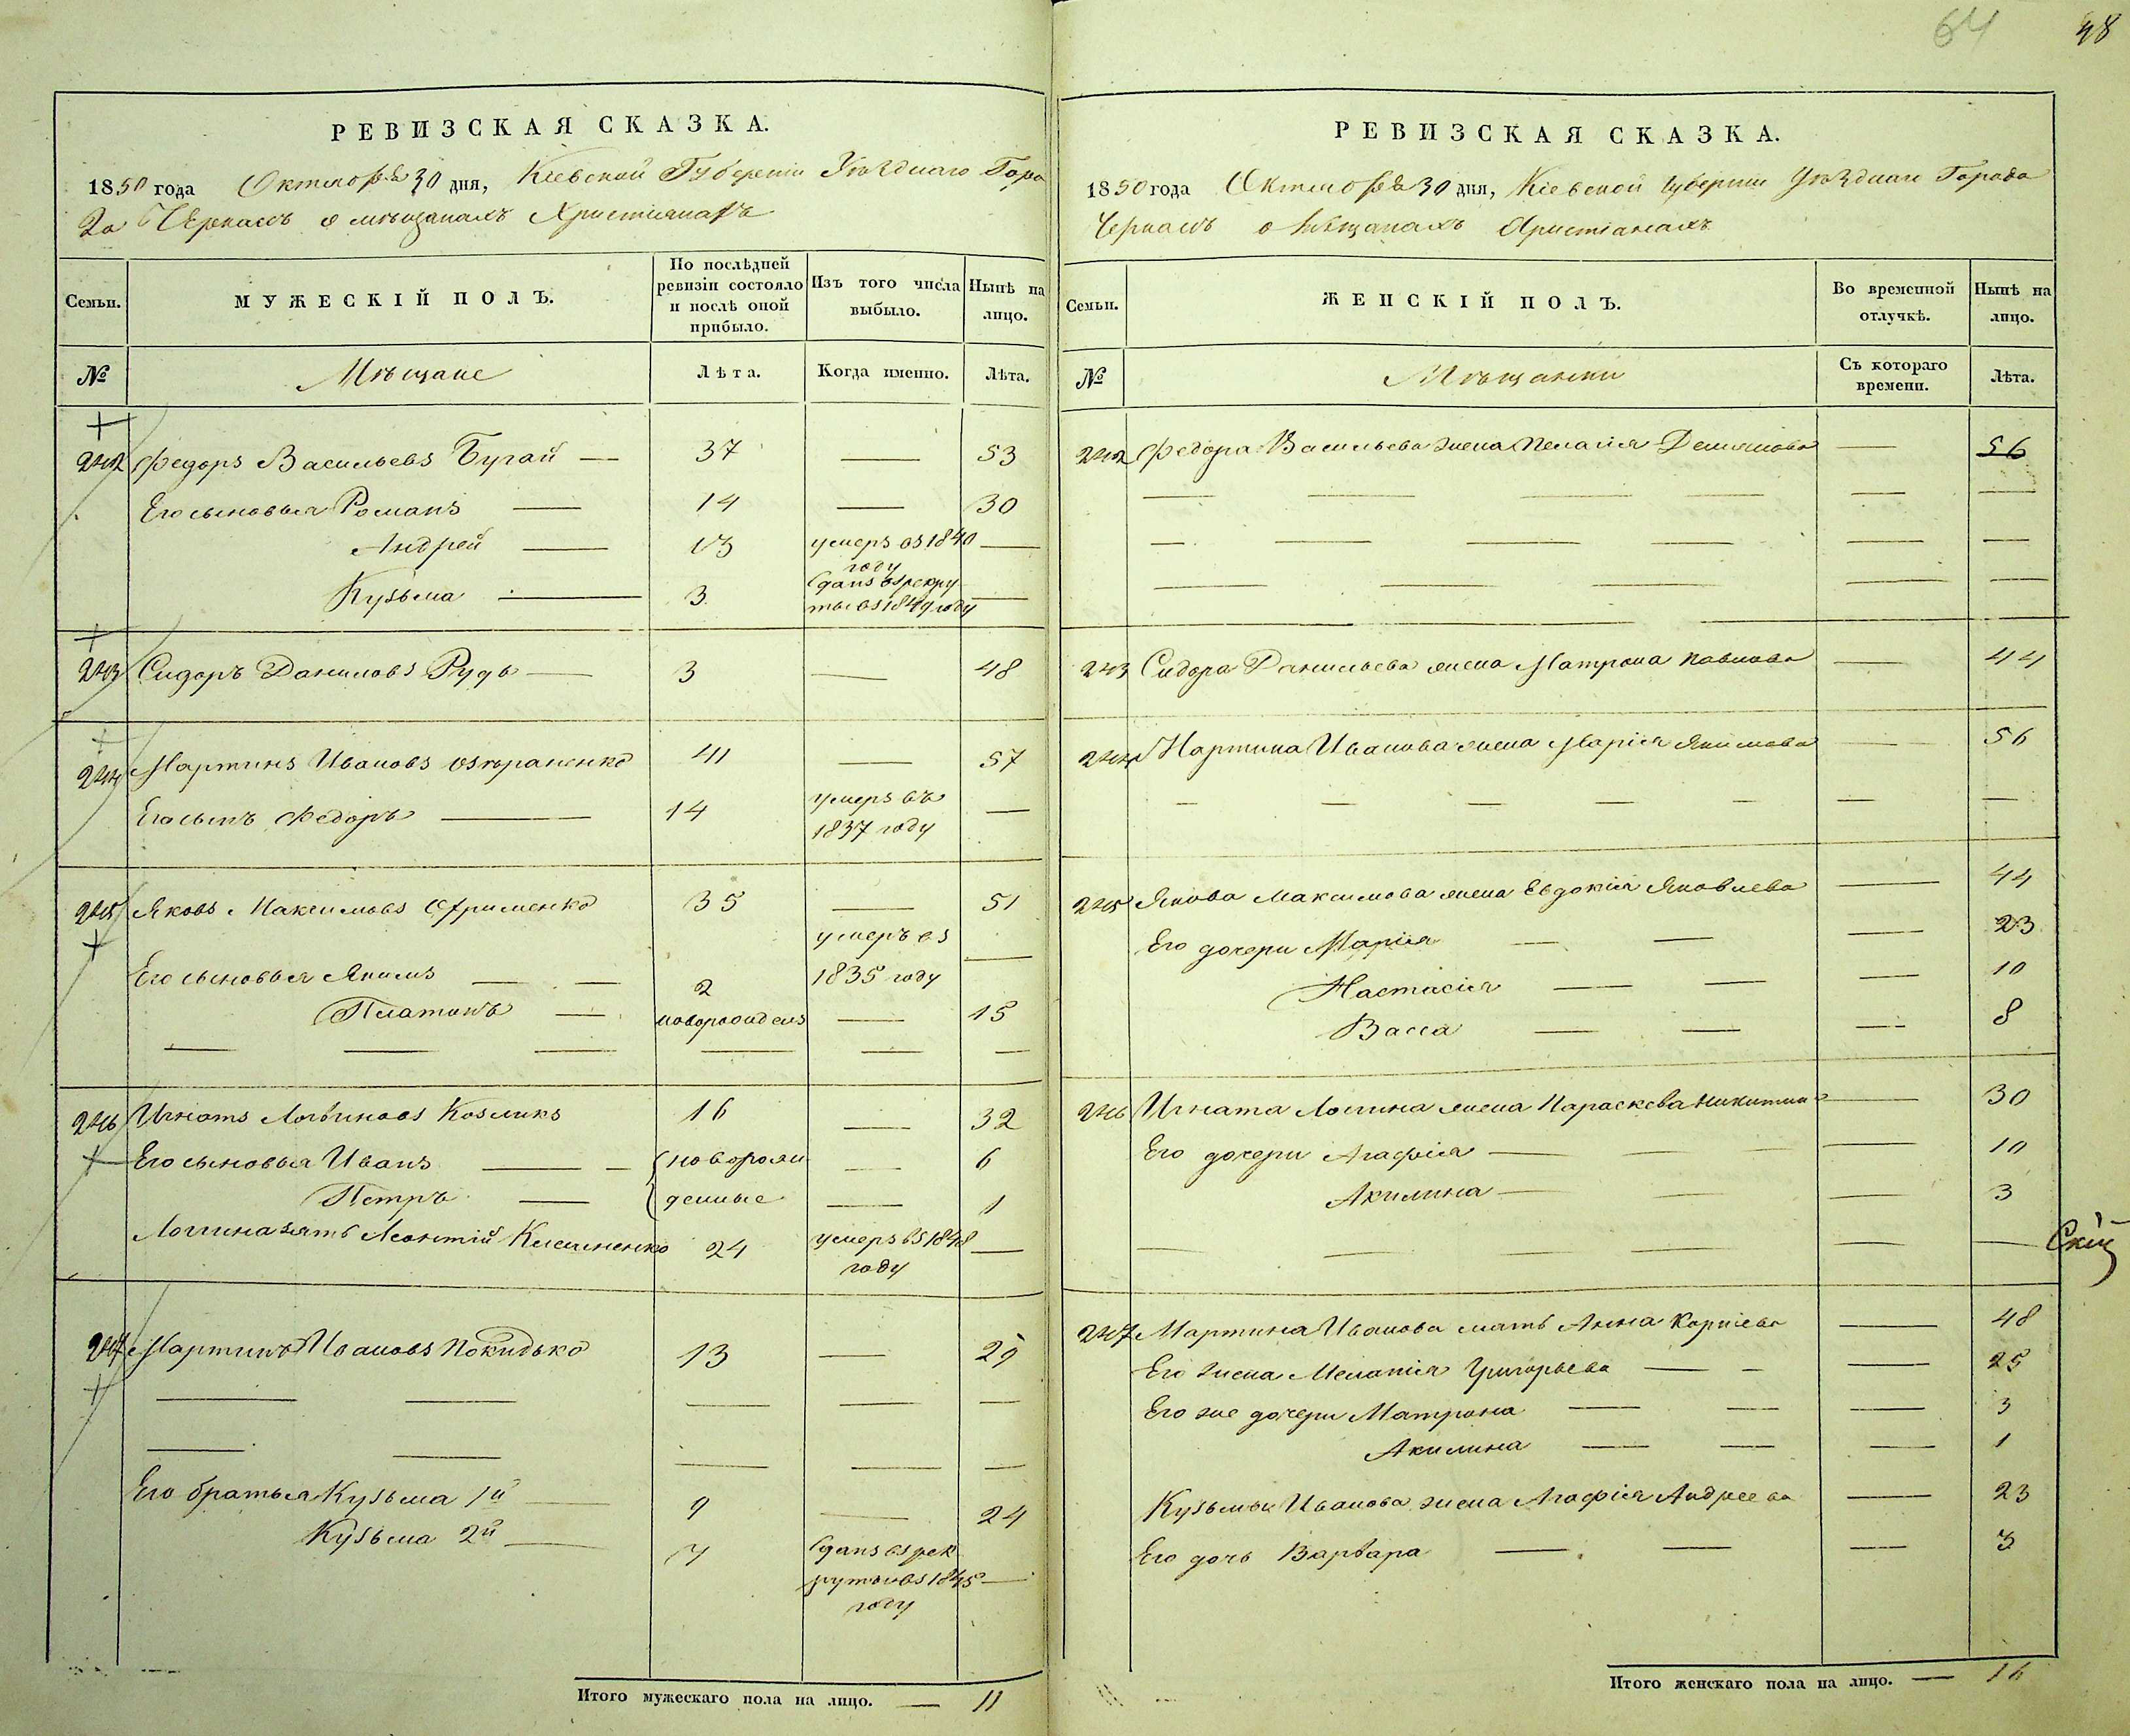 64
48
РЕВИЗСКАЯ СКАЗКА.
1850 года Октября 30 дня, Кіевской Губерніи Уѣзднаго Горо
да Черкасъ о мѣщанахъ Христіянахъ
Семьи.
МУЖЕСКІЙ ПОЛЪ.
По послѣдней ревизіи состояло и послѣ оной прибыло.
Изъ того числа выбыло.
Нынѣ на лицо.
№
Мѣщане
Лѣта.
Когда именно.
Лѣта.
242 Федоръ Васильевъ Бугай — 37 — 53
Его сыновья Романъ — 14 — 30
Андрей — 13 умеръ въ 1840 году —
Кузьма — 3 сданъ въ рекру
ты въ 1849 году —
243 Сидоръ Даниловъ Рудь — 3 — 48
244 Мартинъ Ивановъ 41 — 57
Его сынъ Федоръ — 14 умеръ въ
1837 году —
245 Яковъ Максимовъ Ефименко 35 — 51
Его сыновья Якимъ — — 2 умеръ въ
1835 году —
Платонъ — новорожденъ — 15
246 Игнатъ Логвиновъ Козликъ 16 — 32
Его сыновья Иванъ — новорож — 6
Петръ — денные — 1
Логгина зять Леонтій 24 умеръ въ 1848
году —
247 Мартинъ Ивановъ Покидько 13 — 29
Его братья Кузьма 1й — 9 — 24
Кузьма 2й — 7 сданъ въ рек
руты въ 1845
году —
Итого мужескаго пола на лицо. — 11
РЕВИЗСКАЯ СКАЗКА.
1850 года Октября 30 дня, Кіевской Губерніи Уѣзднаго Города
Черкасъ о Мѣщанахъ Христіанахъ
Семьи.
ЖЕНСКІЙ ПОЛЪ.
Во временной отлучкѣ.
Нынѣ на лицо.
№
Мѣщанки
Съ котораго времени.
Лѣта.
242 Федора Васильева жена Пелагія Демянова — 56
243 Сидора Данильева жена Матрона Павлова — 44
244 Мартина Иванова жена Марія Якимова — 56
245 Якова Максимова жена Евдокія Яковлева — 44
Его дочери Марія — — — 23
Настасія — — — 10
Васса — — — 8
246 Игната Логина жена Параскева Никитина — 30
Его дочери Агафія — — — 10
Акилина — — — 3
247 Мартина Иванова мать Анна Корніева — 48
Его жена Меланія Григорьева — — — 25
Его же дочери Матрона — — — 3
Акилина — — — 1
Кузьмы Иванова жена Агафія Андреева — 23
Его дочь Варвара — — — 3
Итого женскаго пола на лицо. — 16